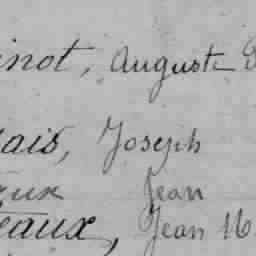 inot, Auguste
ais, Joseph
eux Jean
eaux, Jean M.